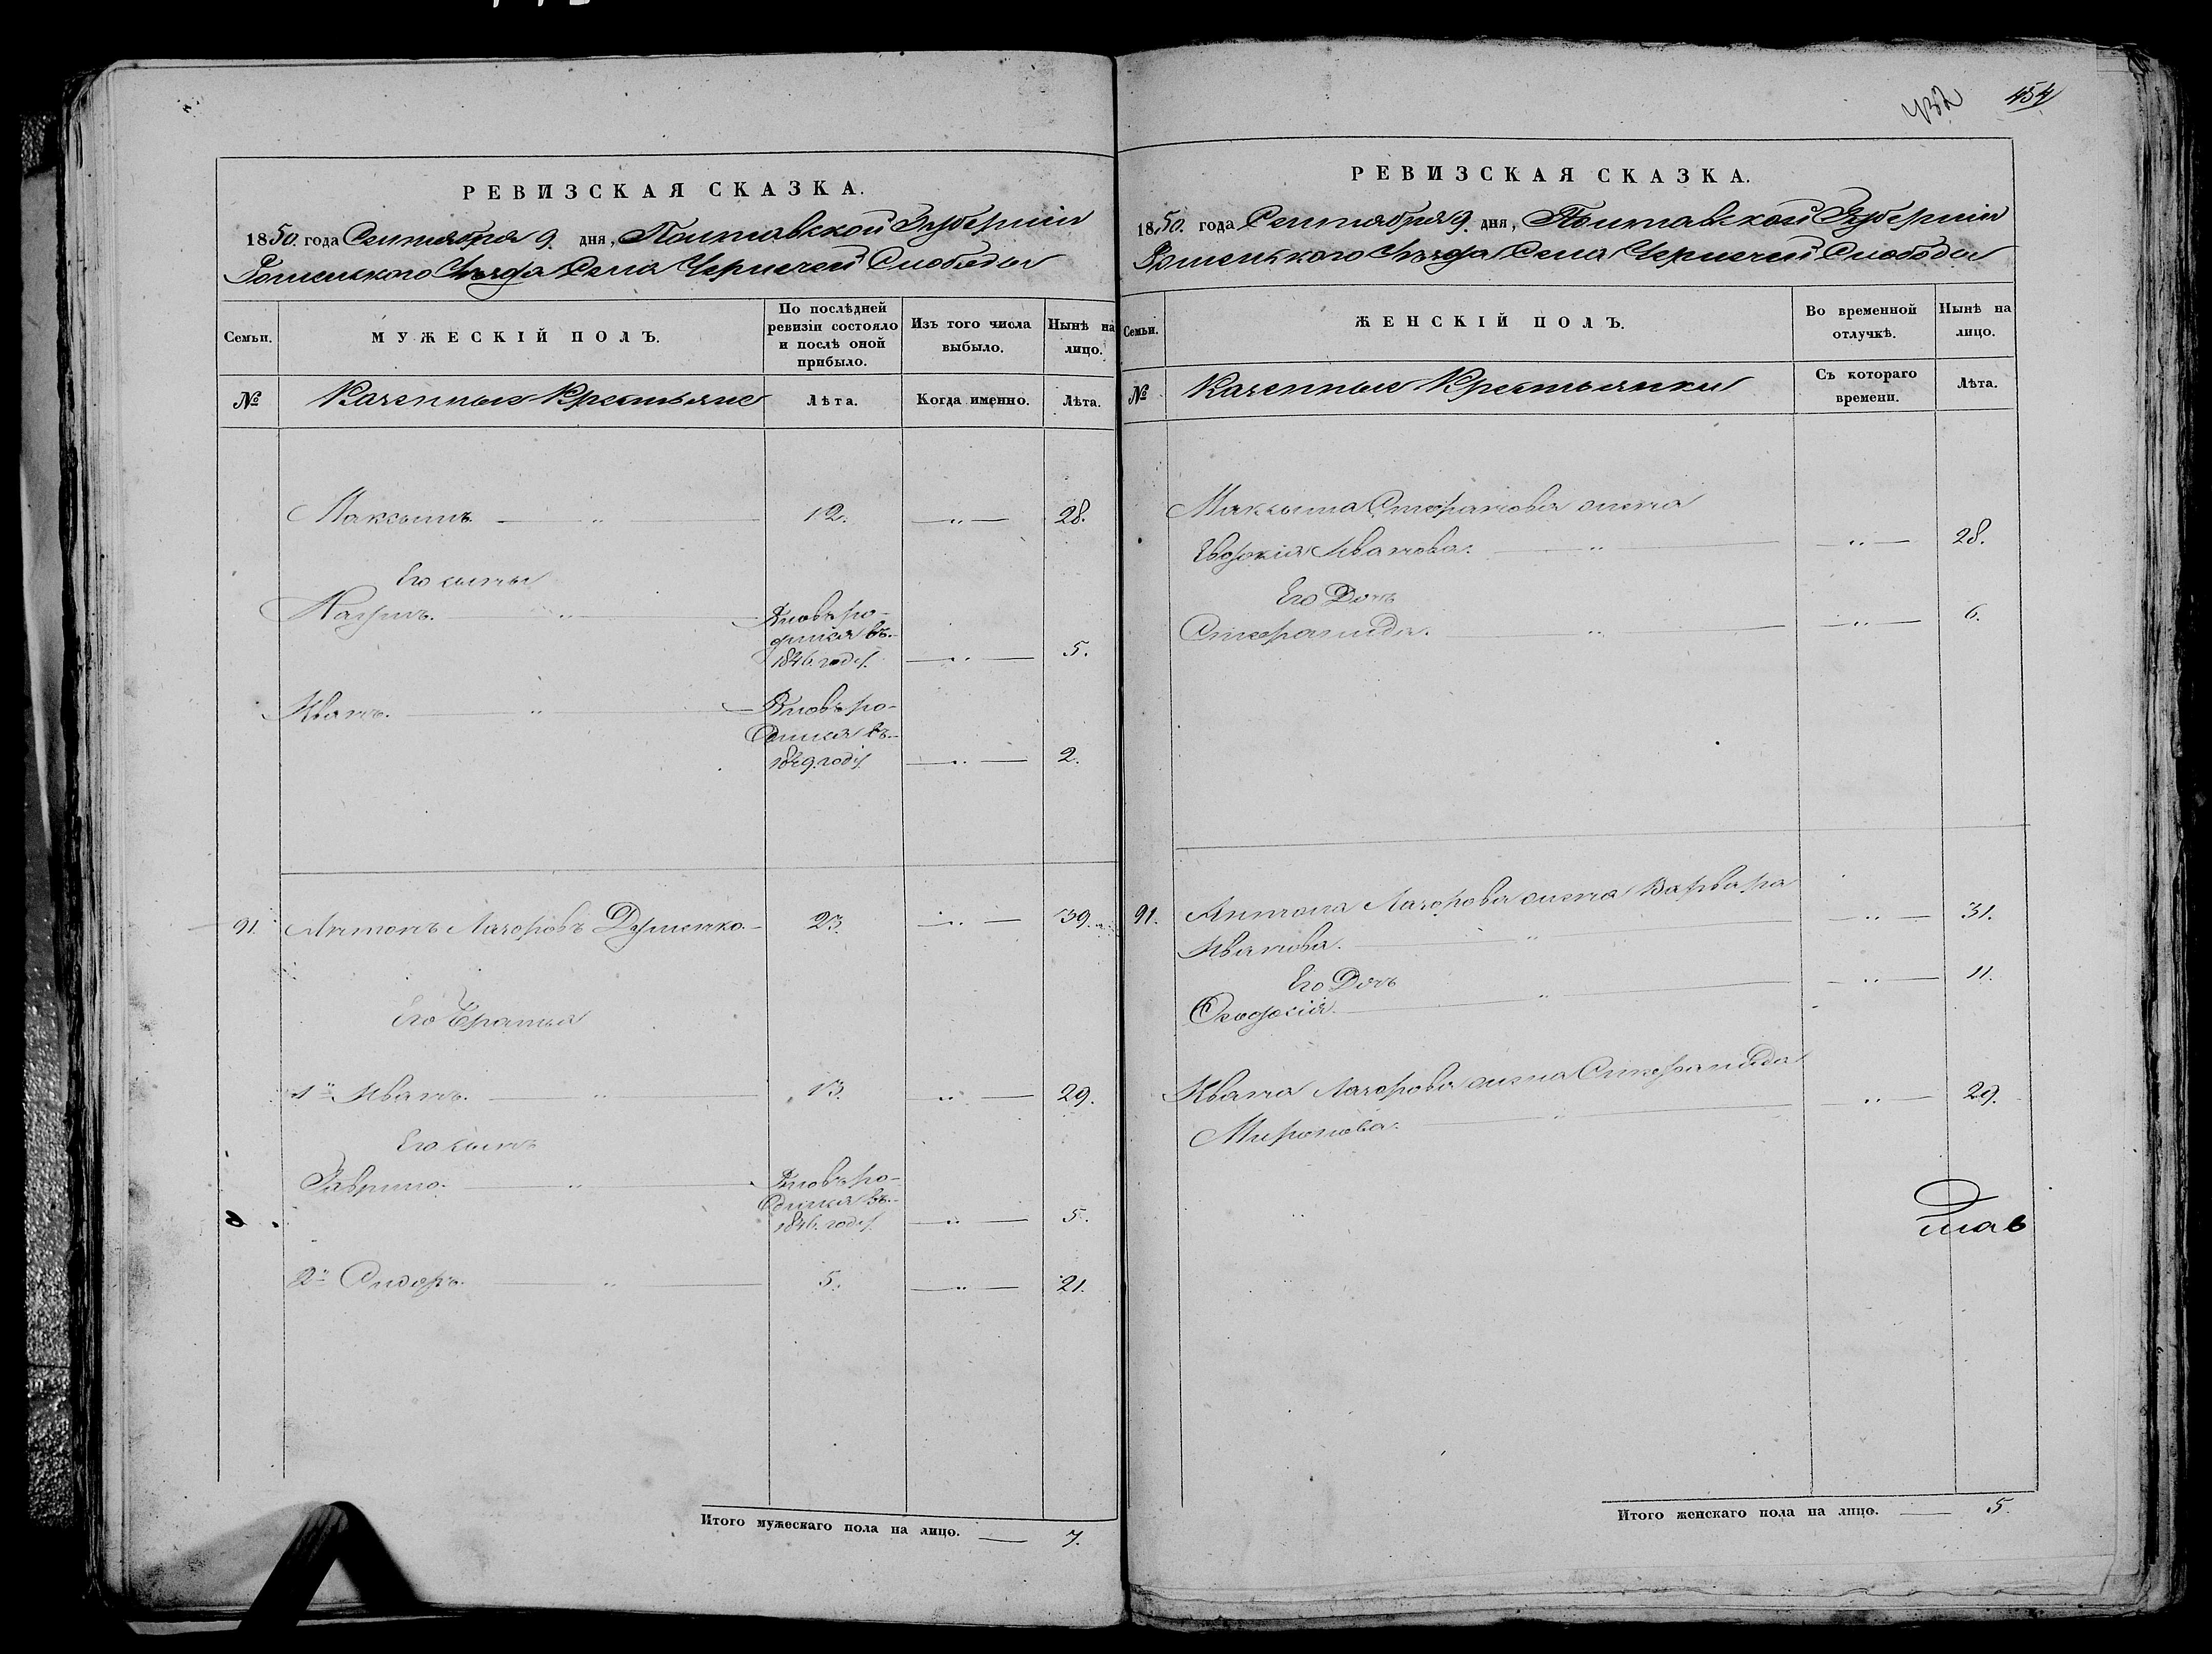 432 454
РЕВИЗСКАЯ СКАЗКА.
1850. года Сентября 9. дня, Полтавской Губернiи
Роменского Уѣзда Села Чернечей Слободы
Семьи.
МУЖЕСКIЙ ПОЛЪ.
По послѣдней ревизiи состояло и послѣ оной прибыло.
Изъ того числа выбыло.
Нынѣ на лицо.
№
Казенные Крестьяне
Лѣта.
Когда именно.
Лѣта.
Максимъ. — „ — 12. — „ — 28.
Его сыны
— „ — Вновь ро-
дился въ
1846. году. — „ — 5.
Иванъ. — „ — Вновь ро-
дился въ
1849. году. — „ — 2.
91. Антонъ Лазоровъ — 23. — „ — 39.
Его Братья
1й Иванъ. — „ — 13. — „ — 29.
Его сынъ
Гаврило. — „ — Вновь ро-
дился въ
1846. году. — „ — 5.
2й Сидоръ. — „ — 5. — „ — 21.
Итого мужескаго пола на лицо. — 7.
РЕВИЗСКАЯ СКАЗКА.
1850. года Сентября 9. дня, Полтавской Губернiи
Роменького Уѣзда Села Чернечей Слободы
Семьи.
ЖЕНСКIЙ ПОЛЪ.
Во временной отлучкѣ.
Нынѣ на лицо.
№
Казенные Крестьянки
Съ котораго времени.
Лѣта.
Максима Стефанова жена
Иванова. — „ — — „ — 28.
Его Дочь
Стефанида. — „ — — „ — 6.
91. Антона Лазорова жена Варвара
Иванова. — „ — — „ — 31.
Его Дочь
Феодосiя. — „ — — „ — 11.
Ивана Лазорова жена Стефанида
Миронова. — „ — — „ — 29.
Итого женскаго пола на лицо. — 5.